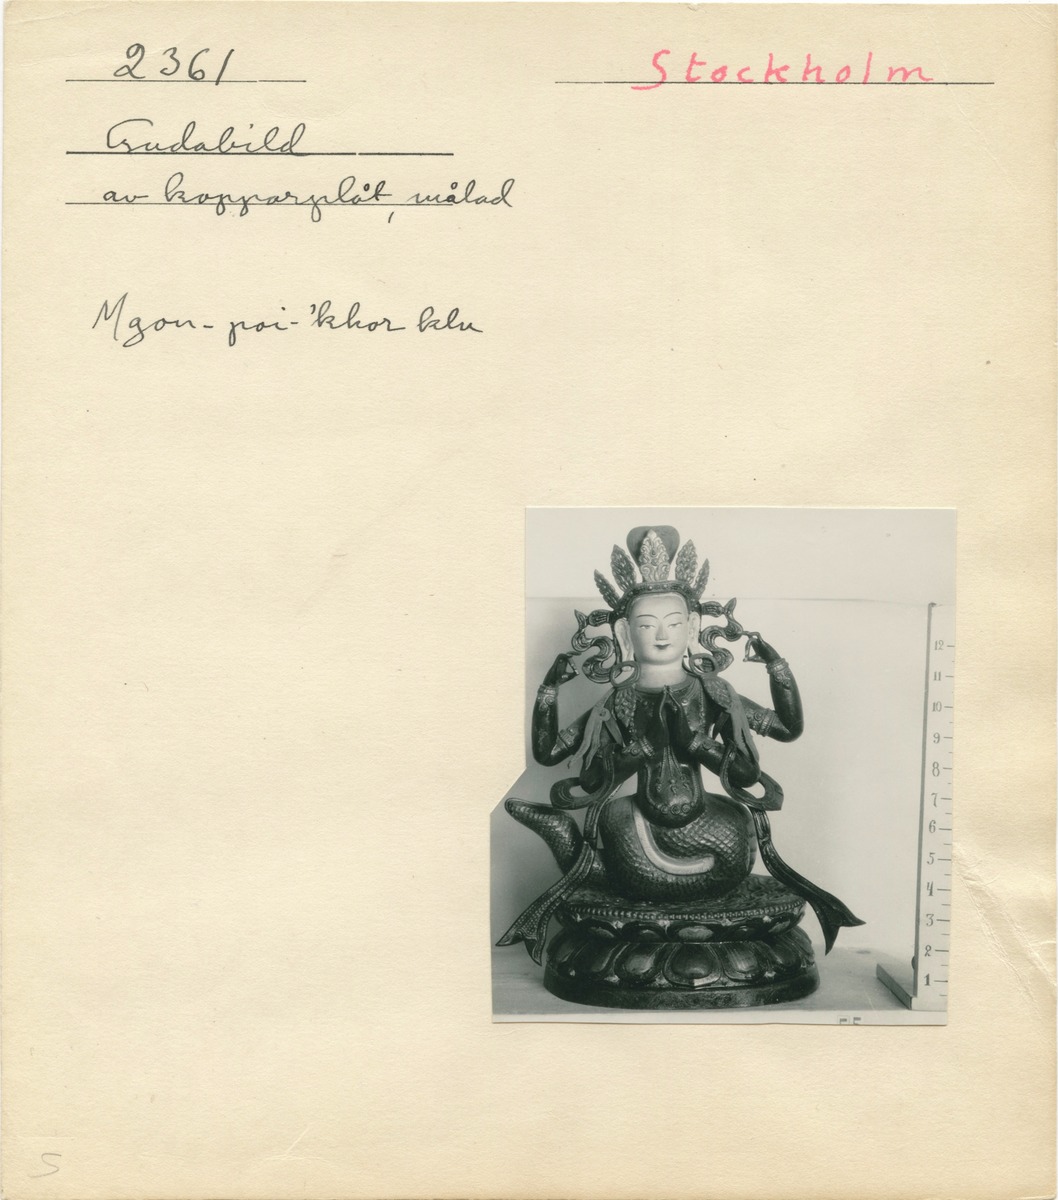 2361
Stockholm
Gudabild
av kopparplåt, målad
Mgon-poi-'khor klu
12
11
10
9
8
7
6
5
4
3
2
1
S